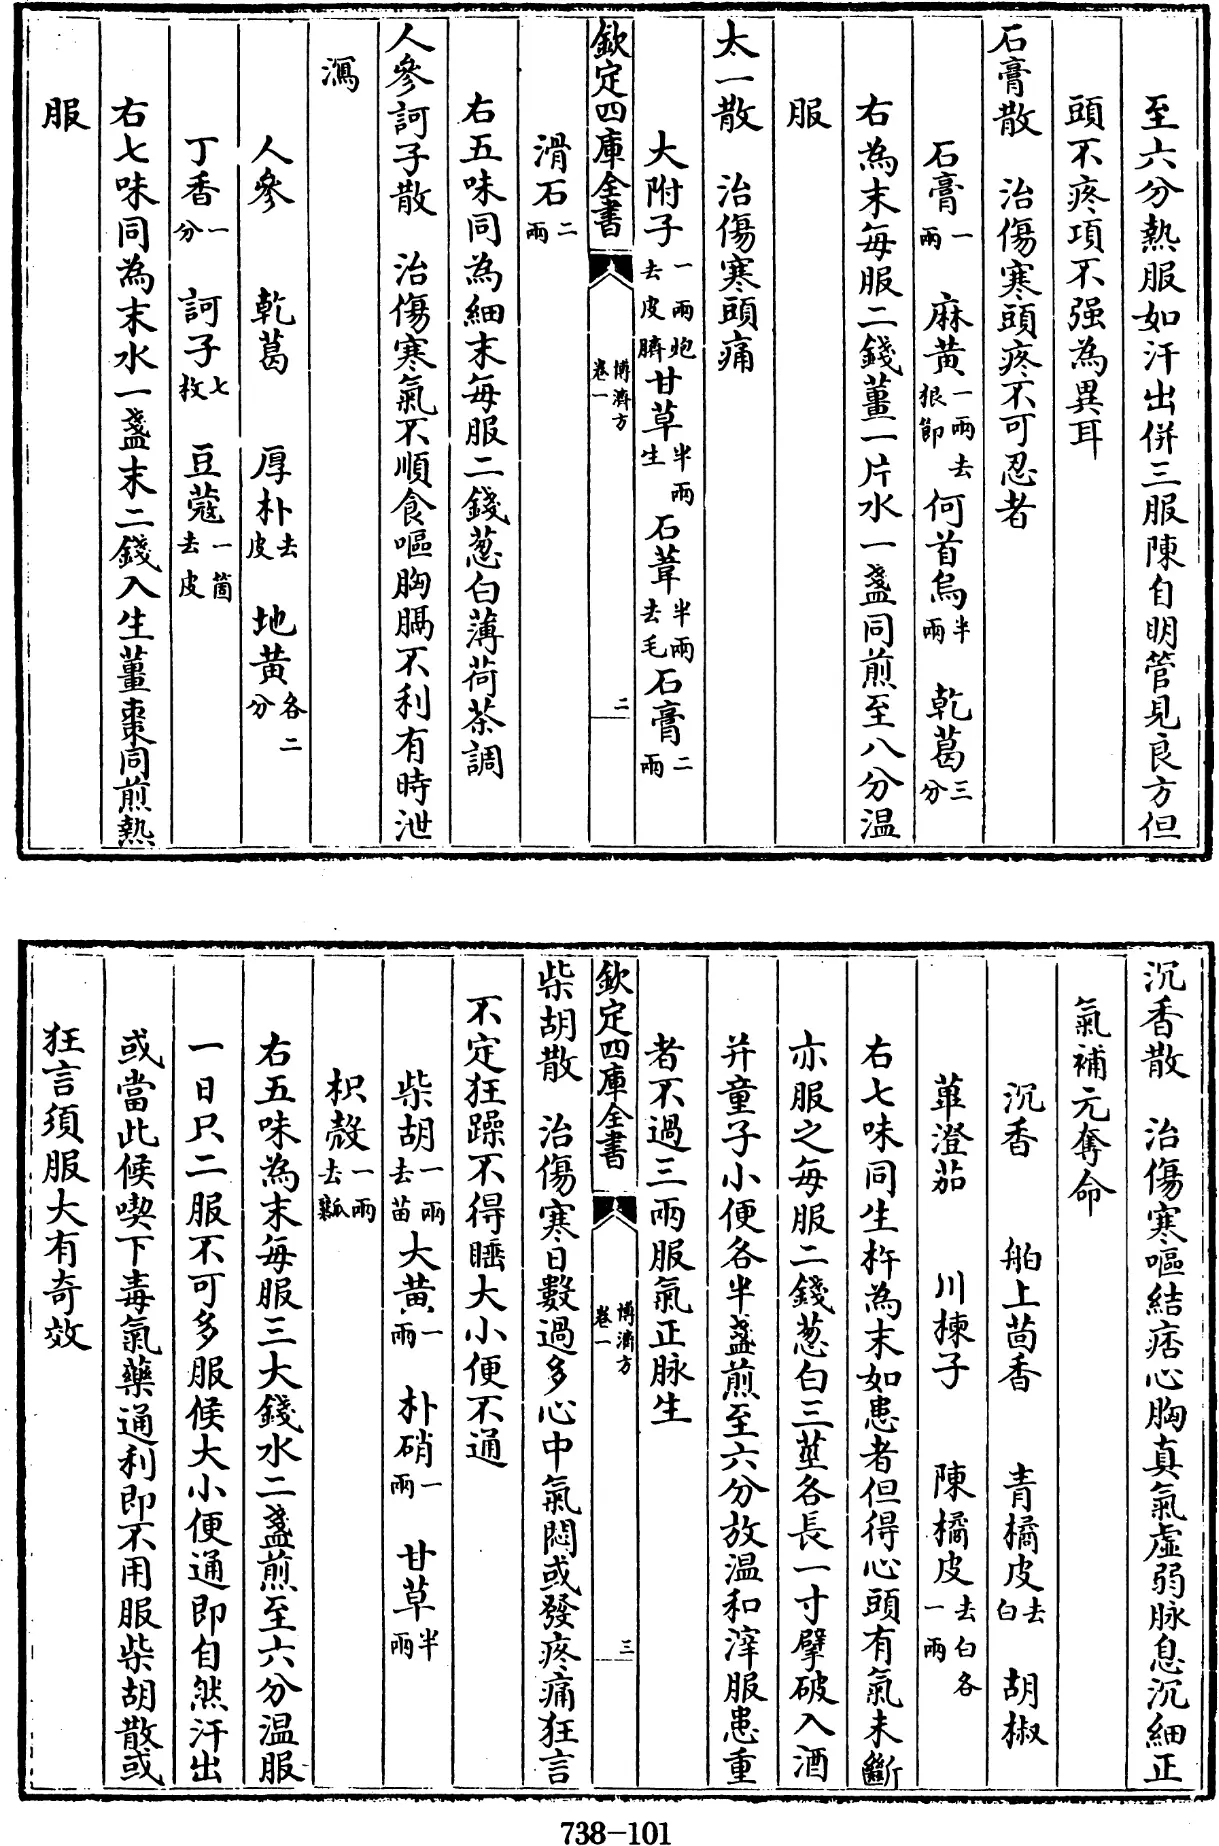 至六分熱服如汗出併三服陳自明管見良方但
頭不疼項不强為異耳
石膏散　治傷寒頭疼不可忍者
石膏一兩　麻黄一兩去根節　何首烏半兩　乾葛三分
右為末每服二錢薑一片水一盞同煎至八分温
服
太一散　治傷寒頭痛
大附子一兩炮去皮臍　甘草半兩生　石葦半兩去毛　石膏二兩
欽定四庫全書　博濟方卷一　二
滑石二兩
右五味同為細末每服二錢葱白薄荷茶調
人參訶子散　治傷寒氣不順食嘔胸膈不利有時泄
瀉
人參　乾葛　厚朴去皮　地黄各二分
丁香一分　訶子七枚　豆蔻一箇去皮
右七味同為末水一盞末二錢入生薑棗同煎熱
服
沉香散　治傷寒嘔結痞心胸真氣虚弱脉息沉細正
氣補元奪命
沉香　舶上茴香　青橘皮去白　胡椒
蓽澄茄　川楝子　陳橘皮去白各一兩
右七味同生杵為末如患者但得心頭有氣未斷
亦服之每服二錢葱白三莖各長一寸擘破入酒
并童子小便各半盞煎至六分放温和滓服患重
者不過三兩服氣正脉生
欽定四庫全書　博濟方卷一　三
柴胡散　治傷寒日數過多心中氣悶或發疼痛狂言
不定狂躁不得睡大小便不通
柴胡一兩去苗　大黄一兩　朴硝一兩　甘草半兩
枳殼一兩去瓤
右五味為末每服三大錢水二盞煎至六分温服
一日只二服不可多服候大小便通即自然汗出
或當此候喫下毒氣藥通利即不用服柴胡散或
狂言須服大有奇效
738-101